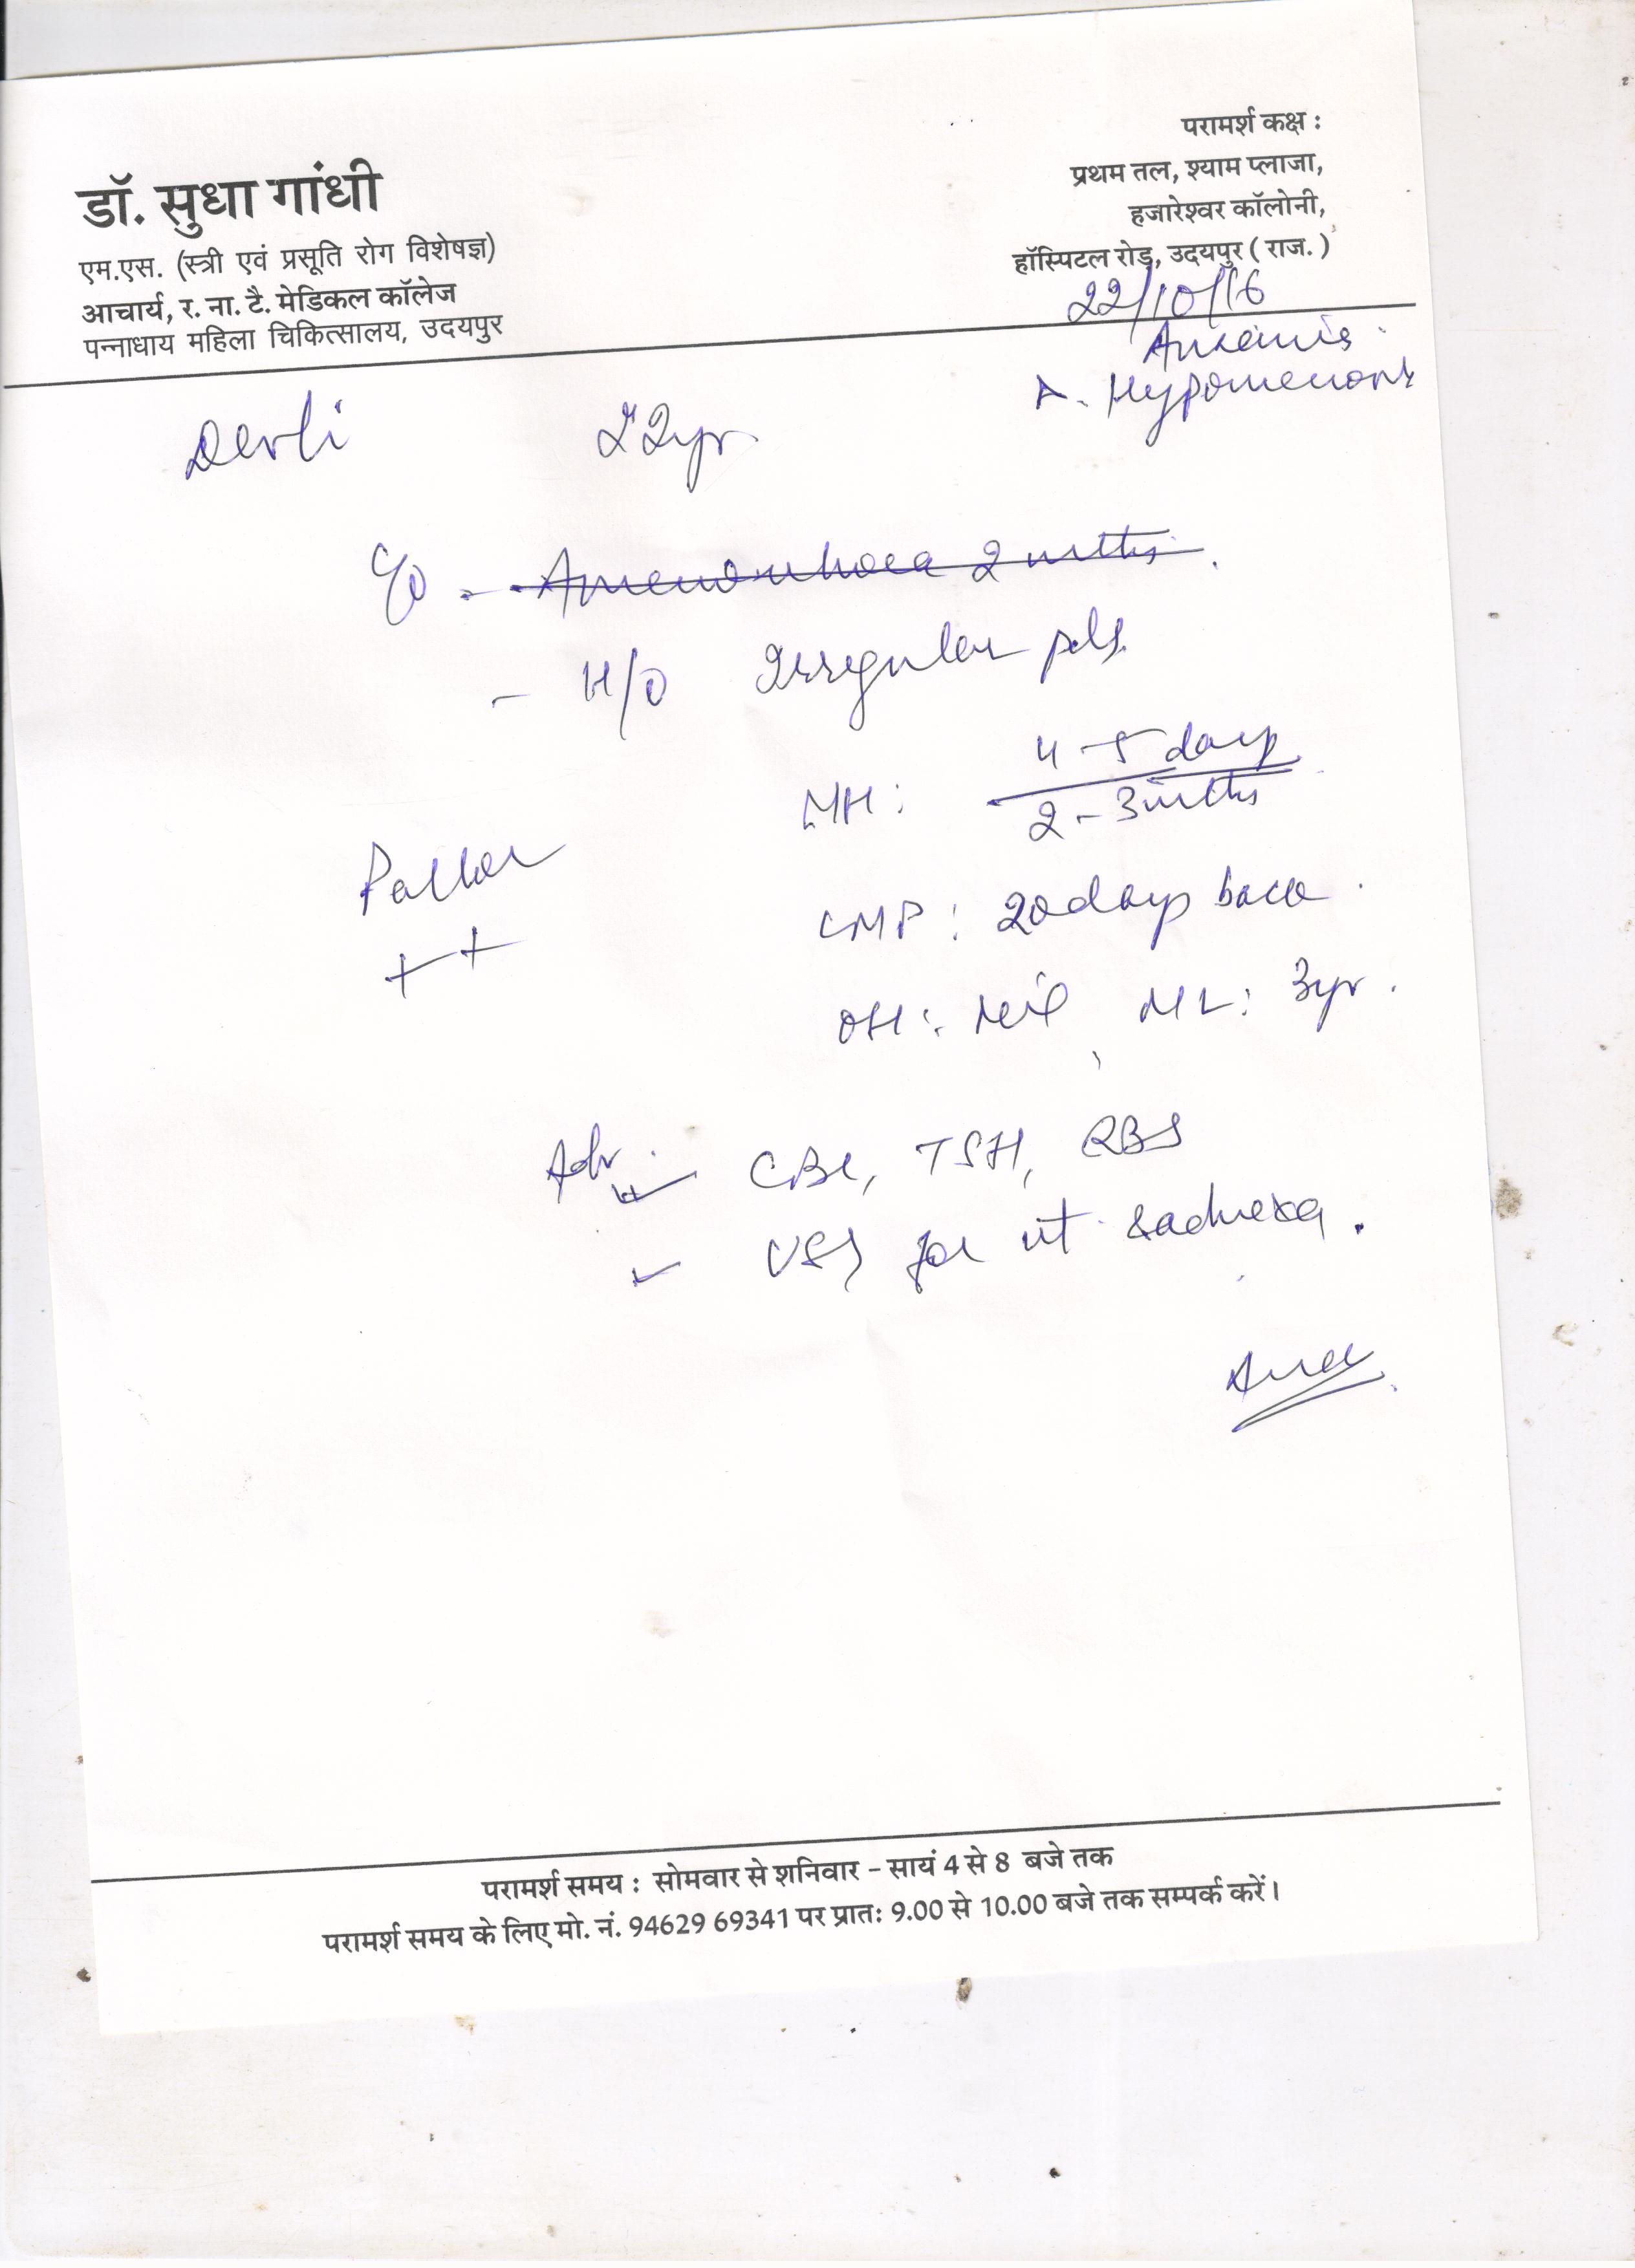 डॉ. सुधा गांधी
एम.एस. (स्त्री एवं प्रसूति रोग विशेषज्ञ)
आचार्य, र. ना. टै. मेडिकल कॉलेज
पन्नाधाय महिला चिकित्सालय, उदयपुर
परामर्श कक्ष :
प्रथम तल, श्याम प्लाजा,
हजारेश्वर कॉलोनी,
हॉस्पिटल रोड़, उदयपुर ( राज. )
22/10/16
Δ.
Devli 22yr
C/o - Amenorrhoea 2 mths.
- H/O Irregular
MH: 4-5 days
2-3 mths
Pallor
++
LMP: 20 days back.
OH: Nil, ML: 3yr.
Adv. CBC, TSH, RBS
USG for ut & adnexa.
परामर्श समय : सोमवार से शनिवार - सायं 4 से 8 बजे तक
परामर्श समय के लिए मो. नं. 94629 69341 पर प्रातः 9.00 से 10.00 बजे तक सम्पर्क करें।